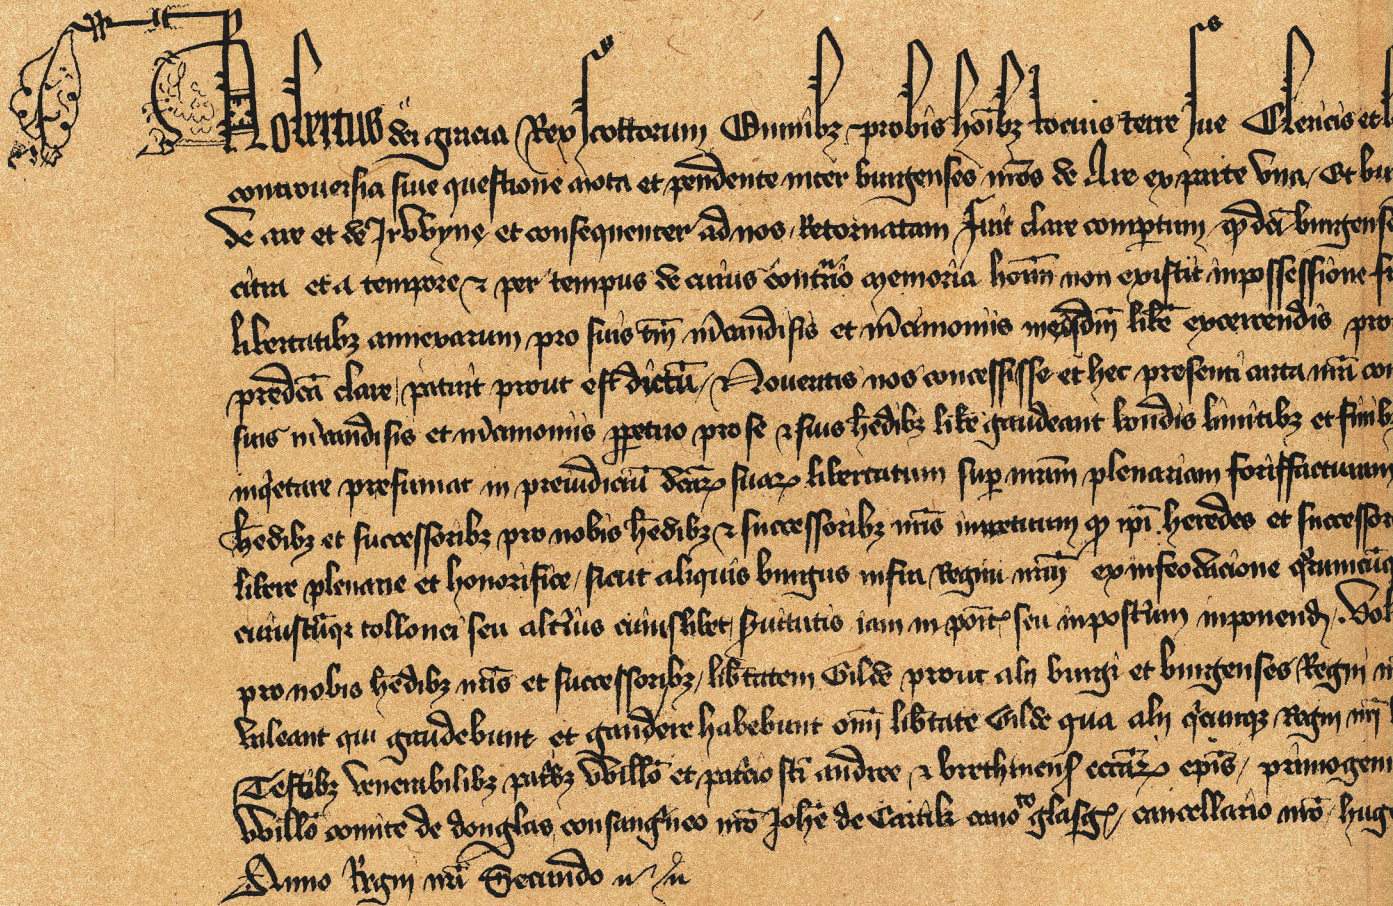 Robertus dei gracia Rex Scottorum Omnibz probis hoibz tocius terre sue Clericis et
controuersia siue questione mota et pendente inter burgenses nros de Are ex parte vna / Et
de are et de Jrwyne et consequenter ad nos retornatam Fuit clare compertum qd dci burgens
citra et a tempore et per tempus de cuius contrario memoria homin non existit in possessione
libertatibz annexarum pro suis tm mcandisis et mcimoniis libe excercendis
predca clare patuit prout est dictu / Noueritis nos concessisse et hac presenti carta nra
suis mcandisis et mcimoniis ppetuo pro se et suis hedibz libe gaudeant bondis limitibz et finibz
inqietare presumat in preiudiciu dcar suar libertatum sup nram plenariam foriffacturam
hedibz et successoribz pro nobis hedibz et successoribz nris imppetuum qd ipi heredes et successor
libere plenarie et honorifice / sicut aliquis burgus infra Regnu nrm ex infeodacione
cuiuscuqz tollonei seu altius cuiuslibet suitutis iam seu in postum inponend
pro nobis hedibz nris et successoribz / libtatem Gilde prout alij burgi et burgenses Regni
valeant qui gaudebunt et gaudere habebunt omi libtate Gilde qua alij Regni nri
Testibz venerabilibz patibz Willo et patricio sci andree et brechinens eccar epis / primogeni
Willo comite de douglas consanguineo nro Johe de Carrik cano glasg / cancellario nro hug
Anno Regni nri Secundo